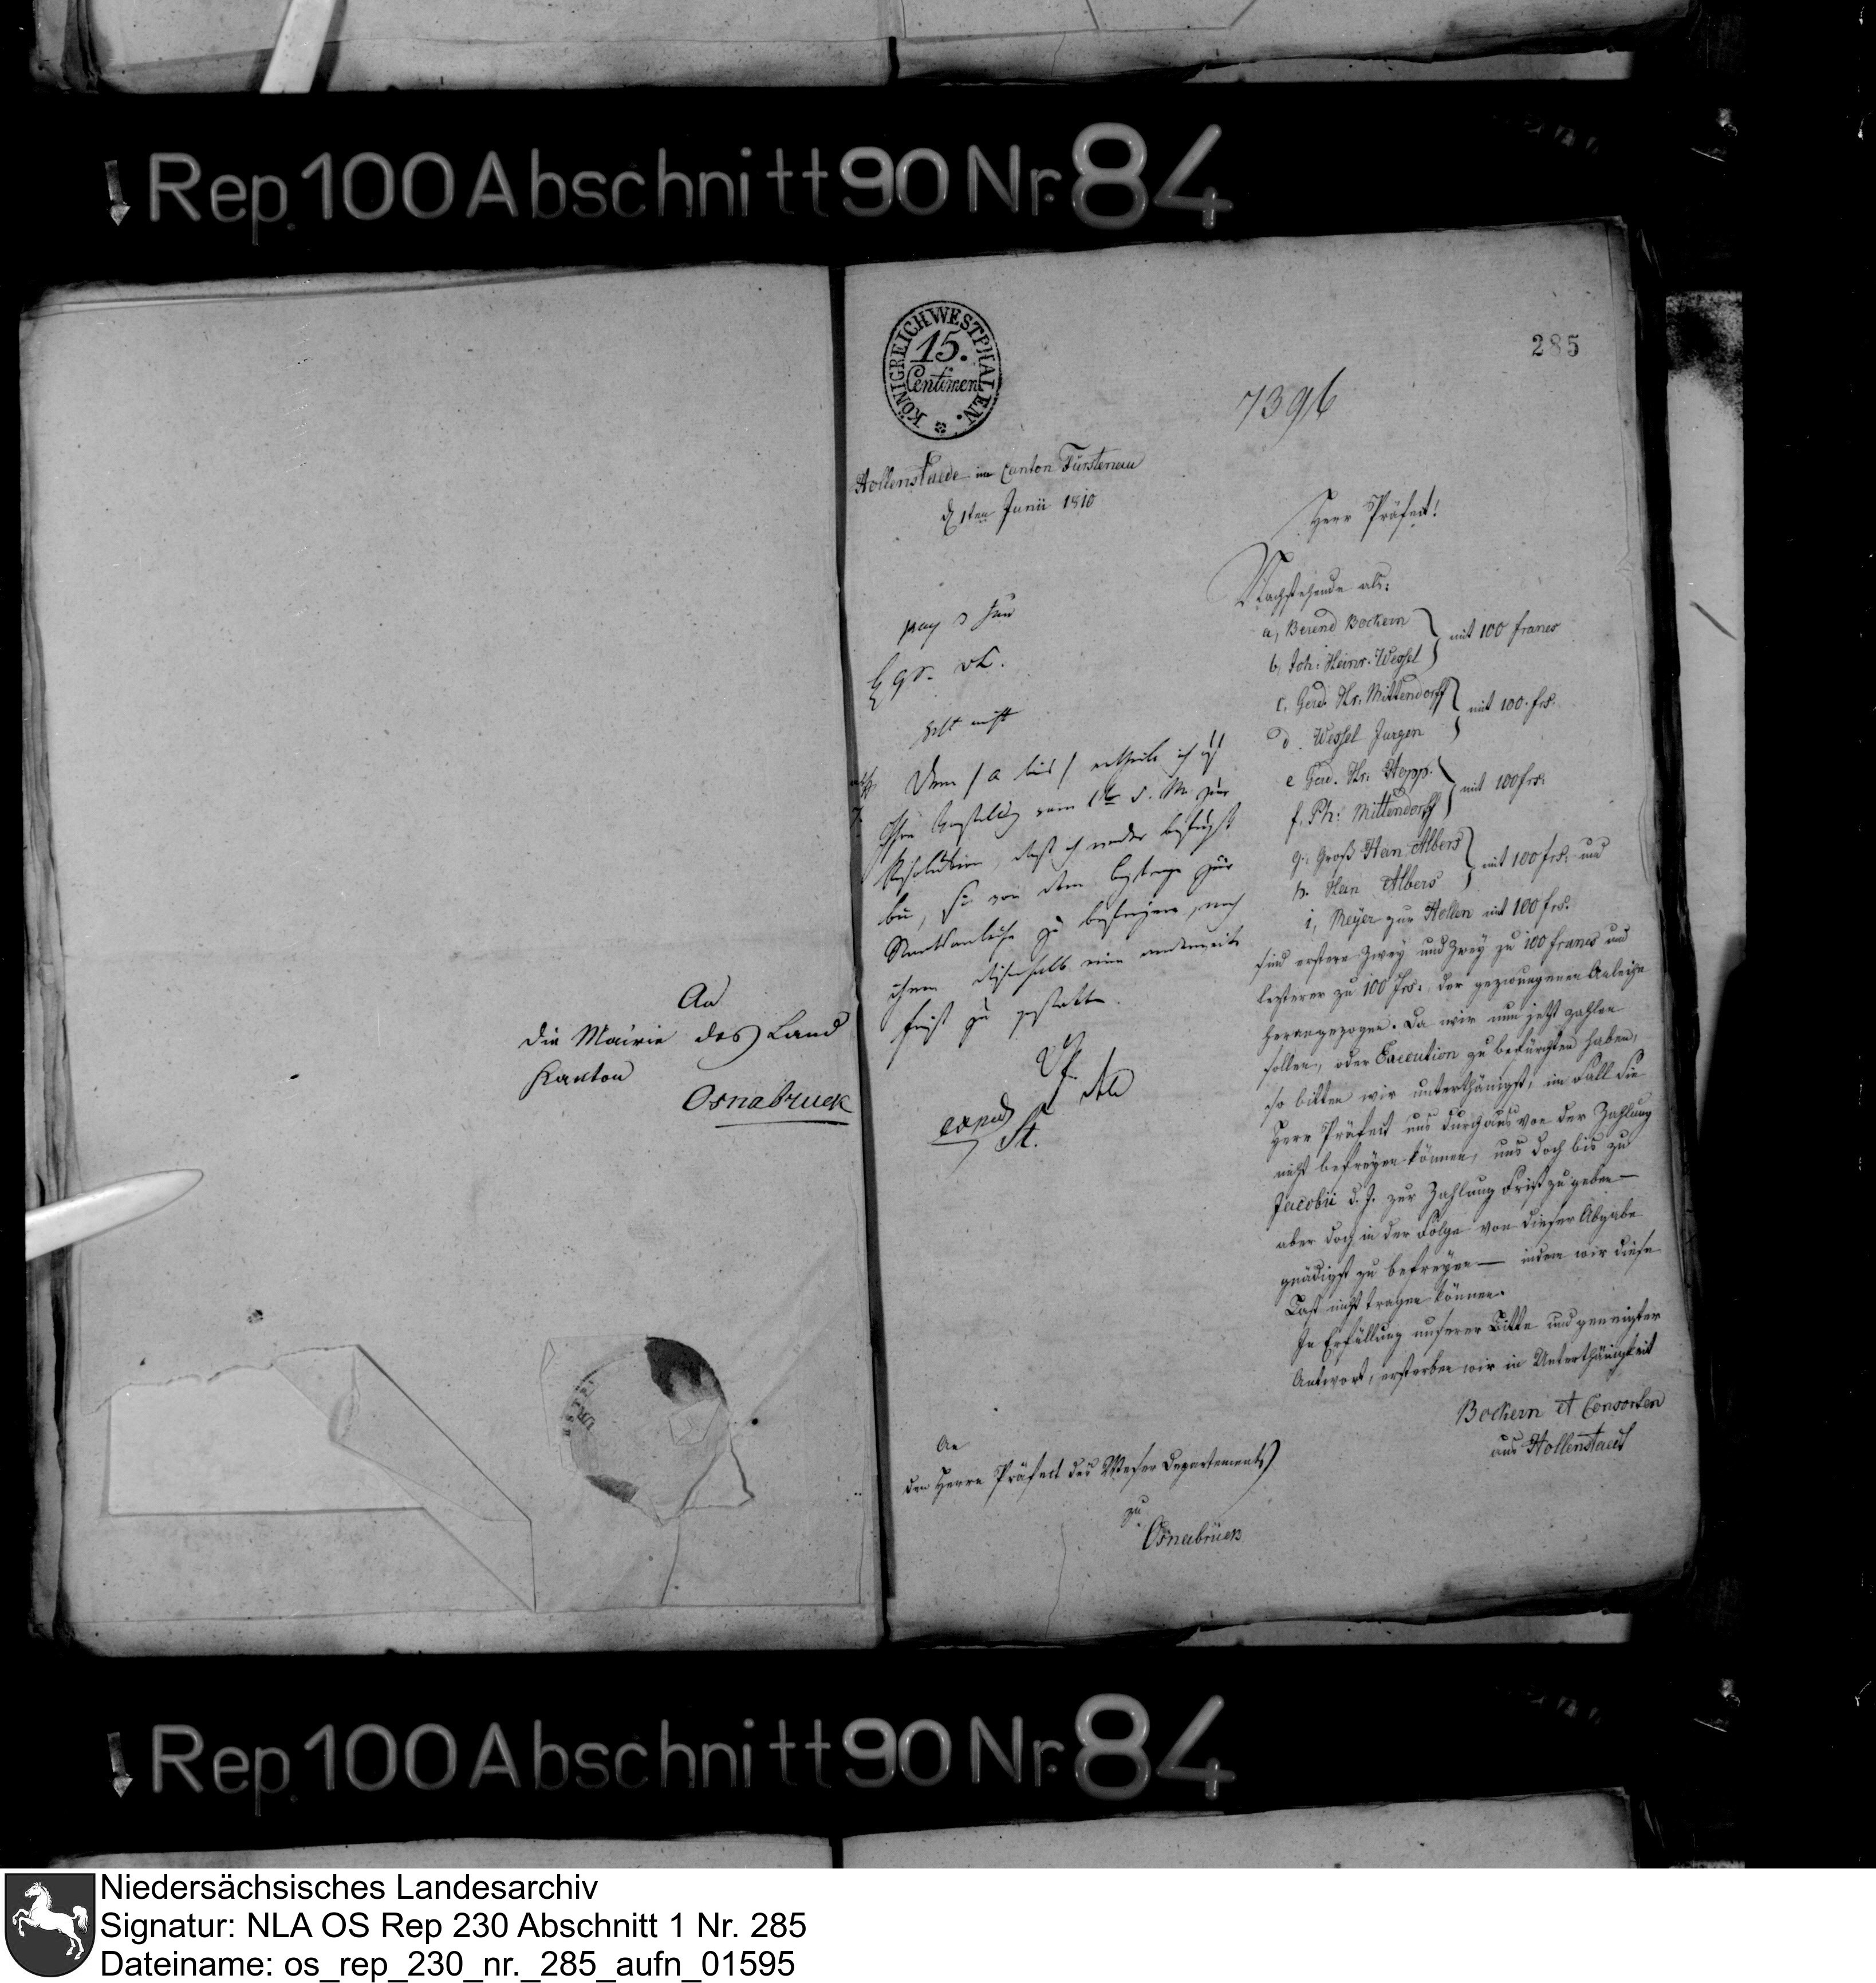 Rep. 100 Abschnitt 90 Nr. 84
An
die Mairie des Land
Kanton
Osnabruck
KÖNIGREICH WESTPHALEN.
15.
Centimen
285
7396
Hollenstaede im Canton Fürstenau
d 1ten Junii 1810
Herr Präfect!
Nachstehende als:
a, Berend Bockern
b, Joh: Heinr. Wessel } mit 100 francs
c. Gerd. Hr. Mittendorff
d. Wessel Jurgen } mit 100. frs.
e Gerd. Hr. Hopp.
f. Ph: Mittendorff } mit 100 frs.
g. Groß Hein Albers
h. Hein Albers } mit 100 frs. und
i, Meyer zur Hellen mit 100 frs.
sind erstere Zwey und Zwey zu 100 francs und
lezterer zu 100 frs. der gezwungenen Anleihe
herangezogen. Da wir nun jetzt zahlen
sollen, oder Execution zu befürchten haben,
so bitten wir unterthänigst, im Fall Sie
Herr Präfect uns durchaus von der Zahlung
nicht befreyen können, uns doch bis zu
Jacobii d. J. zur Zahlung Frist zu geben —
aber doch in der Folge von dieser Abgabe
gnädigst zu befreyen — indem wir diese
Last nicht tragen können.
In Erfüllung unserer Bitte und geneigter
Antwort, ersterben wir in Unterthänigkeit
Bockern et Consorten
aus Hollenstaedt
Dem / a bis / ertheile ich auf
Ihre Vorstellung vom 1ten d. M. zur
Resolution, daß ich weder befugt
bin, sie von dem Beytrage zur
Staatsanleihe zu befreyen, noch
ihnen dieserhalb eine anderweite
Frist zu gestatten.
exped
St.
An
den Herrn Präfect des Weser Departements
zu
Osnabrück
Rep. 100 Abschnitt 90 Nr. 84
Niedersächsisches Landesarchiv
Signatur: NLA OS Rep 230 Abschnitt 1 Nr. 285
Dateiname: os_rep_230_nr._285_aufn_01595